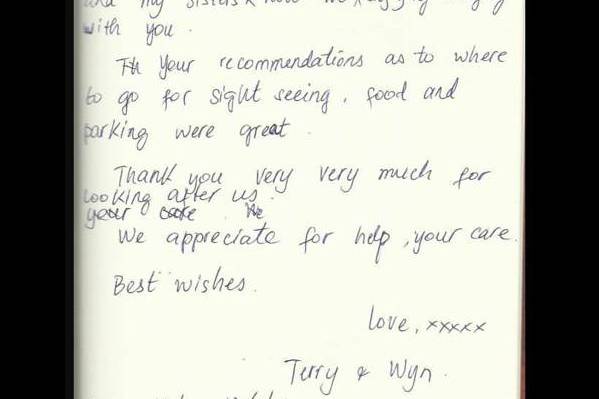 and my sisters
with you.
Your recommendations as to where
to go for sight seeing, food and
parking were great.
Thank you very very much for
looking after us.
your care. We
We appreciate for help, your care.
Best wishes.
love, xxxxx
Terry & Wyn.